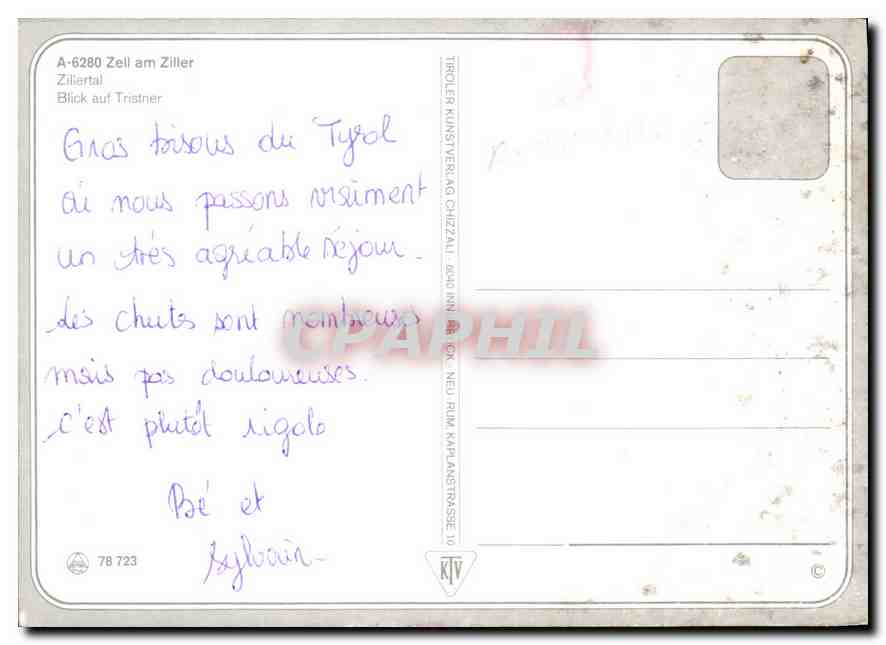 A-6280 Zell am Ziller
Zillertal
Blick auf Tristner
Gros bisous du Tyrol
où nous passons vraiment
un très agréable séjour.
Les chutes sont nombreuses
mais pas douloureuses.
c'est plutôt rigolo
Bé et
Sylvain
78 723
TIROLER KUNSTVERLAG CHIZZALI · 6040 INNSBRUCK - NEU-RUM, KAPLANSTRASSE 10
KTV
©
CPAPHIL